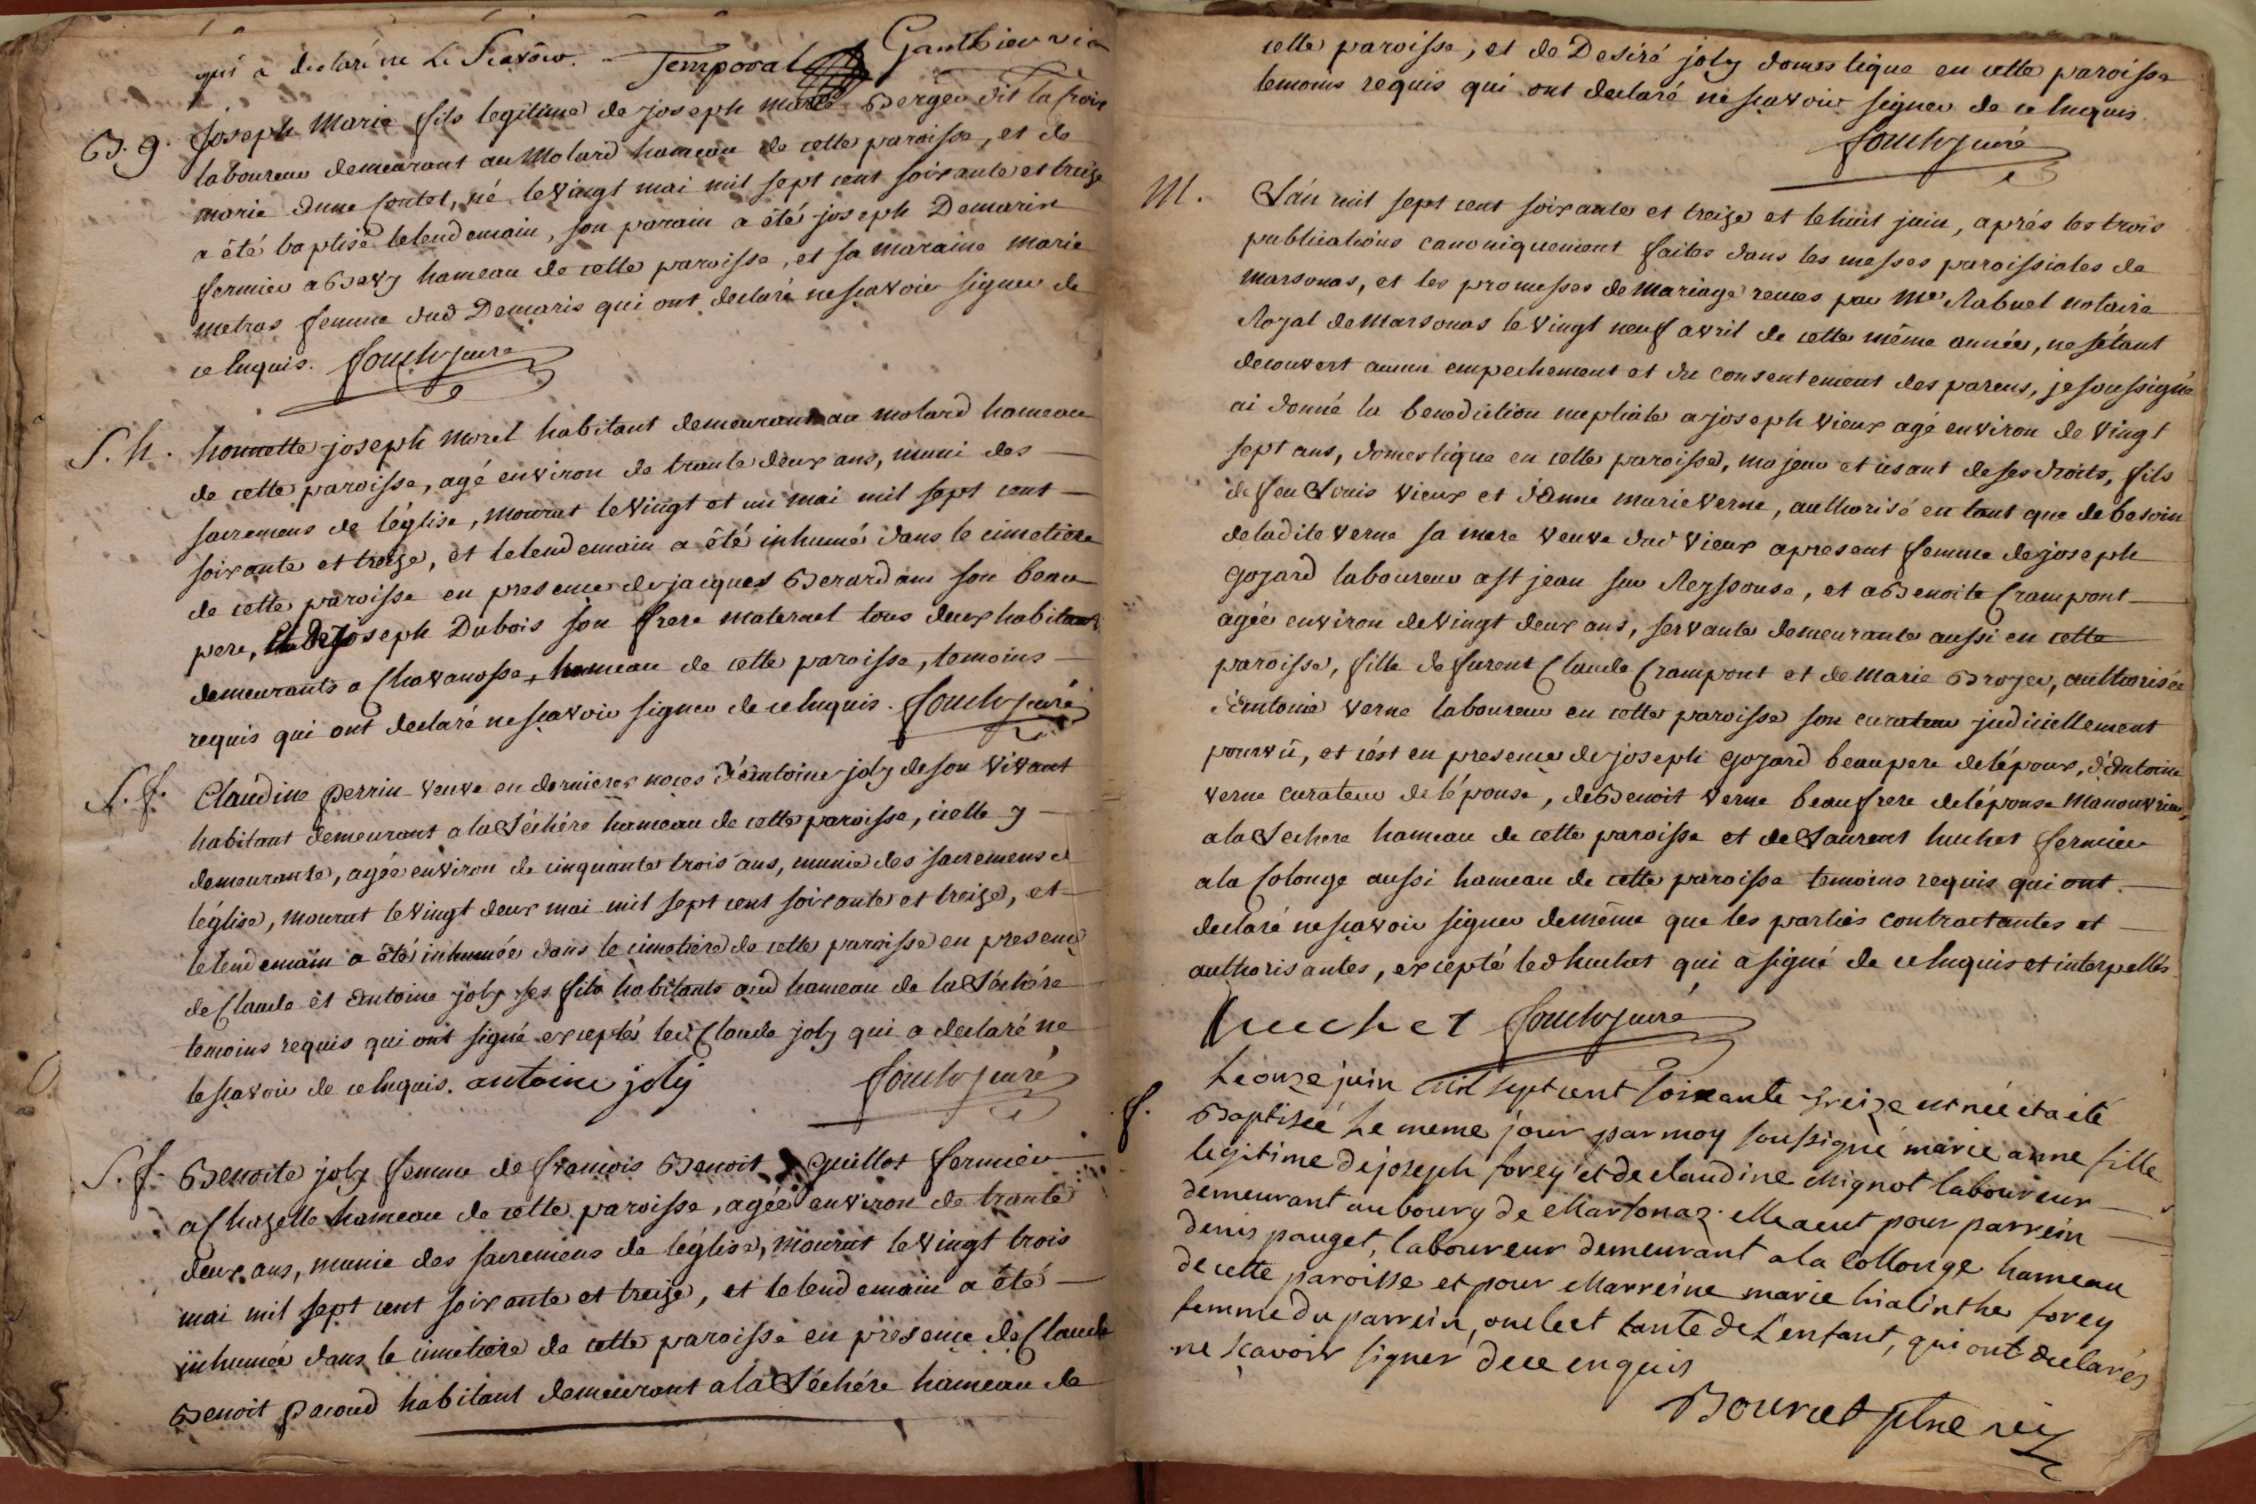 qui a declaré ne Le Scavoir. Temporal Gauthier vic
B. g. Joseph Marie fils legitime de joseph marie Berger dit la croix
laboureur demeurant au Molard hameau de cette paroisse, et de
marie anne Contet, né le vingt mai mil sept cent soixante et treize
a été baptisé le lendemain, son parain a été joseph Demaris
fermier a Bevy hameau de cette paroisse, et sa maraine marie
metras femme dud Demaris qui ont declaré ne sçavoir signer de
ce Enquis. fouch curé
S. h. honnette joseph morel habitant demeurant au molard hameau
de cette paroisse, agé environ de trante deux ans, muni des
sacremens de l'église, mourut le vingt et un mai mil sept cent
soixante et treize, et le lendemain a été inhumé dans le cimetiere
de cette paroisse en presence de jacques Berardan son beau
pere, et de Joseph Dubois son frere maternel tous deux habitants
demeurants a Chavanosse hameau de cette paroisse, temoins
requis qui ont declaré ne sçavoir signer de ce Enquis. fouch curé
S. f. Claudine perrin veuve en dernieres noces d'Antoine joly de son vivant
habitant demeurant a la Léchére hameau de cette paroisse, icelle y
demeurante, agée environ de cinquante trois ans, munie des sacremens de
l'église, mourut le vingt deux mai mil sept cent soixante et treize, et
le lendemain a été inhumée dans le cimetiere de cette paroisse en presence
de Claude et Antoine joly ses fils habitants aud hameau de la Léchére
temoins requis qui ont signé exceptés led Claude joly qui a declaré ne
le sçavoir de ce Enquis. antoine joly fouch curé
S. f. Benoite joly femme de francois Benoit Guillot fermier
a Chazelle hameau de cette paroisse, agée environ de trante
deux ans, munie des sacremens de l'église, mourut le vingt trois
mai mil sept cent soixante et treize, et le lendemain a été
inhumée dans le cimetiere de cette paroisse en presence de Claude
Benoit pacoud habitant demeurant a la Léchére hameau de
cette paroisse, et de Desiré joly domestique en cette paroisse
temoins requis qui ont declaré ne sçavoir signer de ce Enquis
fouch curé
M. L'an mil sept cent soixante et treize et le huit juin, aprés les trois
publications canoniquement faites dans les messes paroissiales de
marsonas, et les promesses de mariage recues par Me Rabuel notaire
Royal de Marsonas le vingt neuf avril de cette même année, ne s'étant
decouvert aucun empechement et du consentement des parens, je soussigné
ai donné la benediction nuptiale a joseph Vieux agé environ de vingt
sept ans, domestique en cette paroisse, majeur et usant de ses droits, fils
de feu Louis Vieux et d'Anne marie Verne, authorisé en tant que de besoin
de ladite Verne sa mere veuve dud Vieux apresent femme de joseph
gozard laboureur a st jean sur Reyssouse, et a Benoite Crampont
agée environ de vingt deux ans, servante demeurante aussi en cette
paroisse, fille de furent Claude Crampont et de Marie Broyer, authorisée
d'Antoine Verne laboureur en cette paroisse son curateur judiciellement
pourvû, et c'est en presence de joseph gozard beaupere de l'époux, d'Antoine
Verne curateur de l'épouse, de Benoit Verne beaufrere de l'épouse Manouvrier
a la Lechere hameau de cette paroisse et de Laurent huchet fermier
a la Colonge aussi hameau de cette paroisse temoins requis qui ont
declaré ne sçavoir signer de même que les parties contractantes et
authorisantes, excepté led huchet qui a signé de ce Enquis et interpellés
huchet fouch curé
f. Le onze juin mil sept cent soixante treize est née et a été
Baptisée Le meme jour par moy soussigné marie anne fille
legitime de joseph forey et de claudine Mignot laboureur
demeurant au bourg de Marsonaz. elle a eut pour parrein
denis pauget, laboureur demeurant a la Collonge hameau
de cette paroisse et pour Marreine marie hialinthe forey
femme du parrein, oncle et tante de L'enfant, qui ont declarés
ne sçavoir signer de ce enquis
Bourcet ptre vic